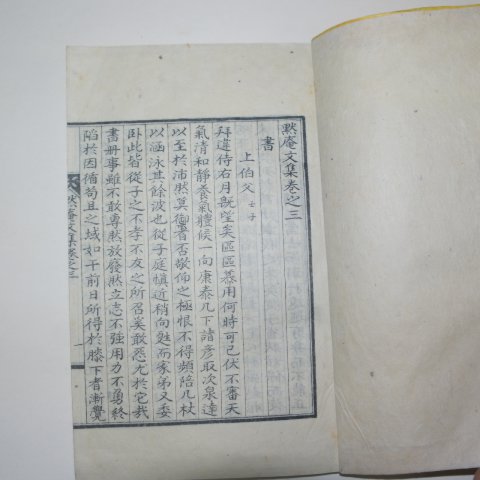 默庵文集卷之三
書
上伯父 壬子
拜違侍右月旣望矣區區慕用何時可已伏不審天
氣淸和靜養氣體候一向康泰凡下諸彦取次泉達
以至於沛然莫禦者否敬仰之極恨不得頻陪几杖
以涵泳其餘波也從子庭愼近稍向甦而家弟又委
臥此皆從子之不孝不友之所召矣敢怨尤於它哉
書冊事雖不敢專然放廢然立志不强用力不勇終
陷於因循苟且之域如干前日所得於膝下者漸覺
默庵文集卷之三
一